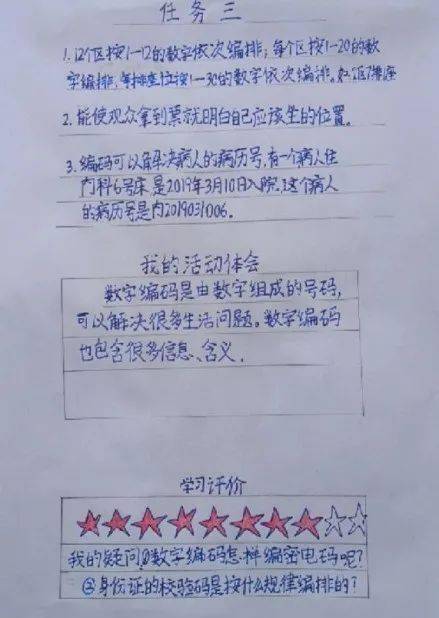 任务三
1.12个区按1—12的数字依次编排;每个区按1-20的数
字编排,每排座位按1—30的数字依次编排。如1区7排座
2.能使观众拿到票就明白自己应该坐的位置。
3.编码可以解决病人的病历号,有一个病人住
内科6号床是2019年3月10日入院.这个病人
的病历号是内2019031006.
我的活动体会
数字编码是由数字组成的号码,
可以解决很多生活问题。数字编码
也包含很多信息、含义.
学习评价
我的疑问①数字编码怎样编密电码呢?
②身份证的校验码是按什么规律编排的?